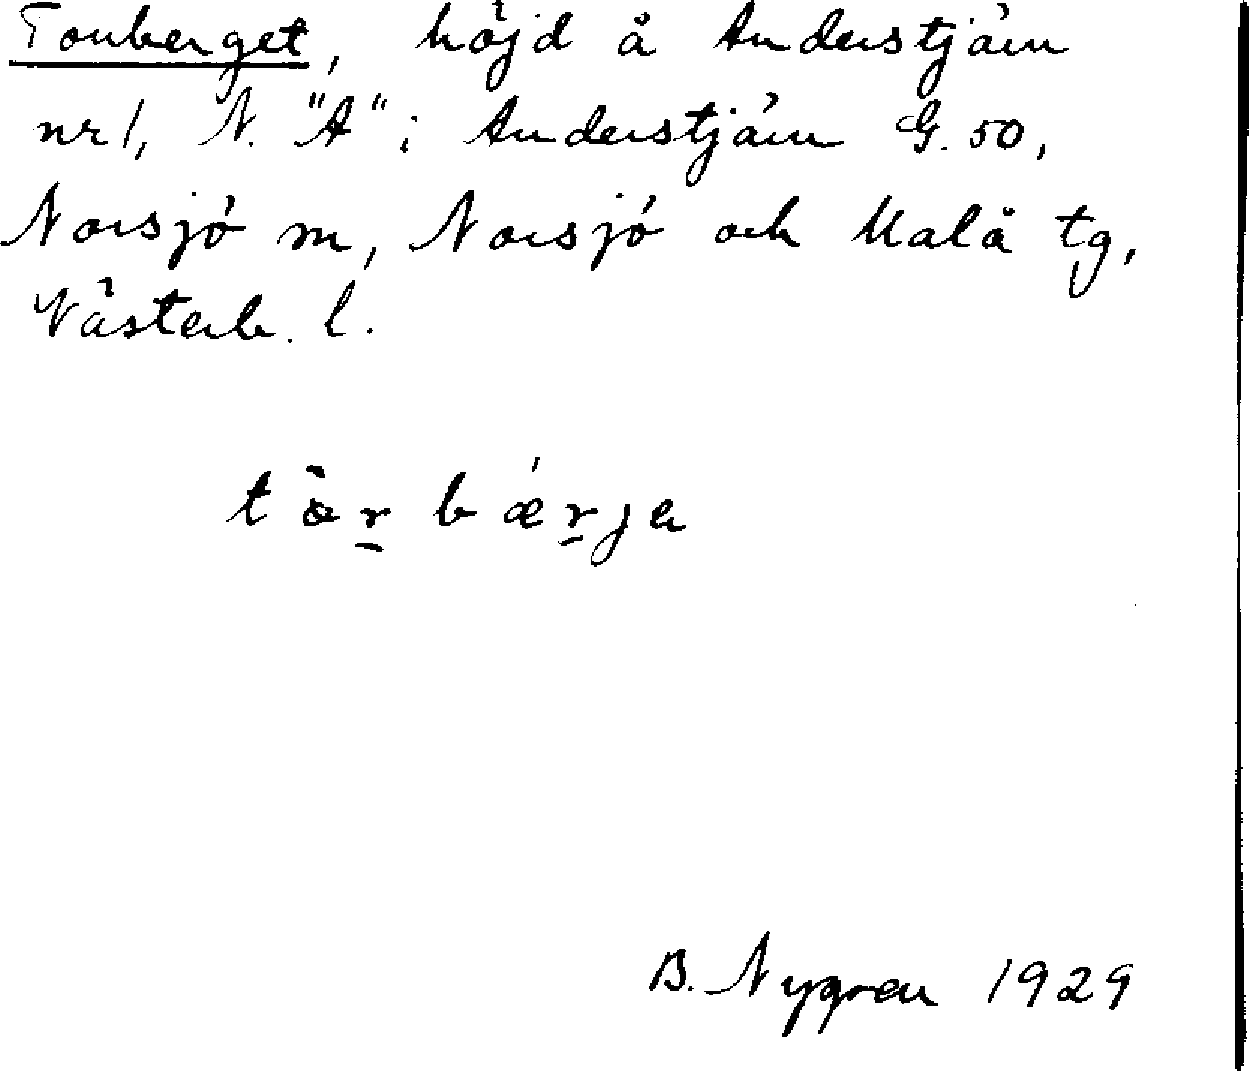 Torrberget, höjd å Anderstjärn
nr 1, N. "A" i Anderstjärn G. 50,
Norsjö sn, Norsjö och Malå tg,
Västerb. l.
B. Nygren 1929